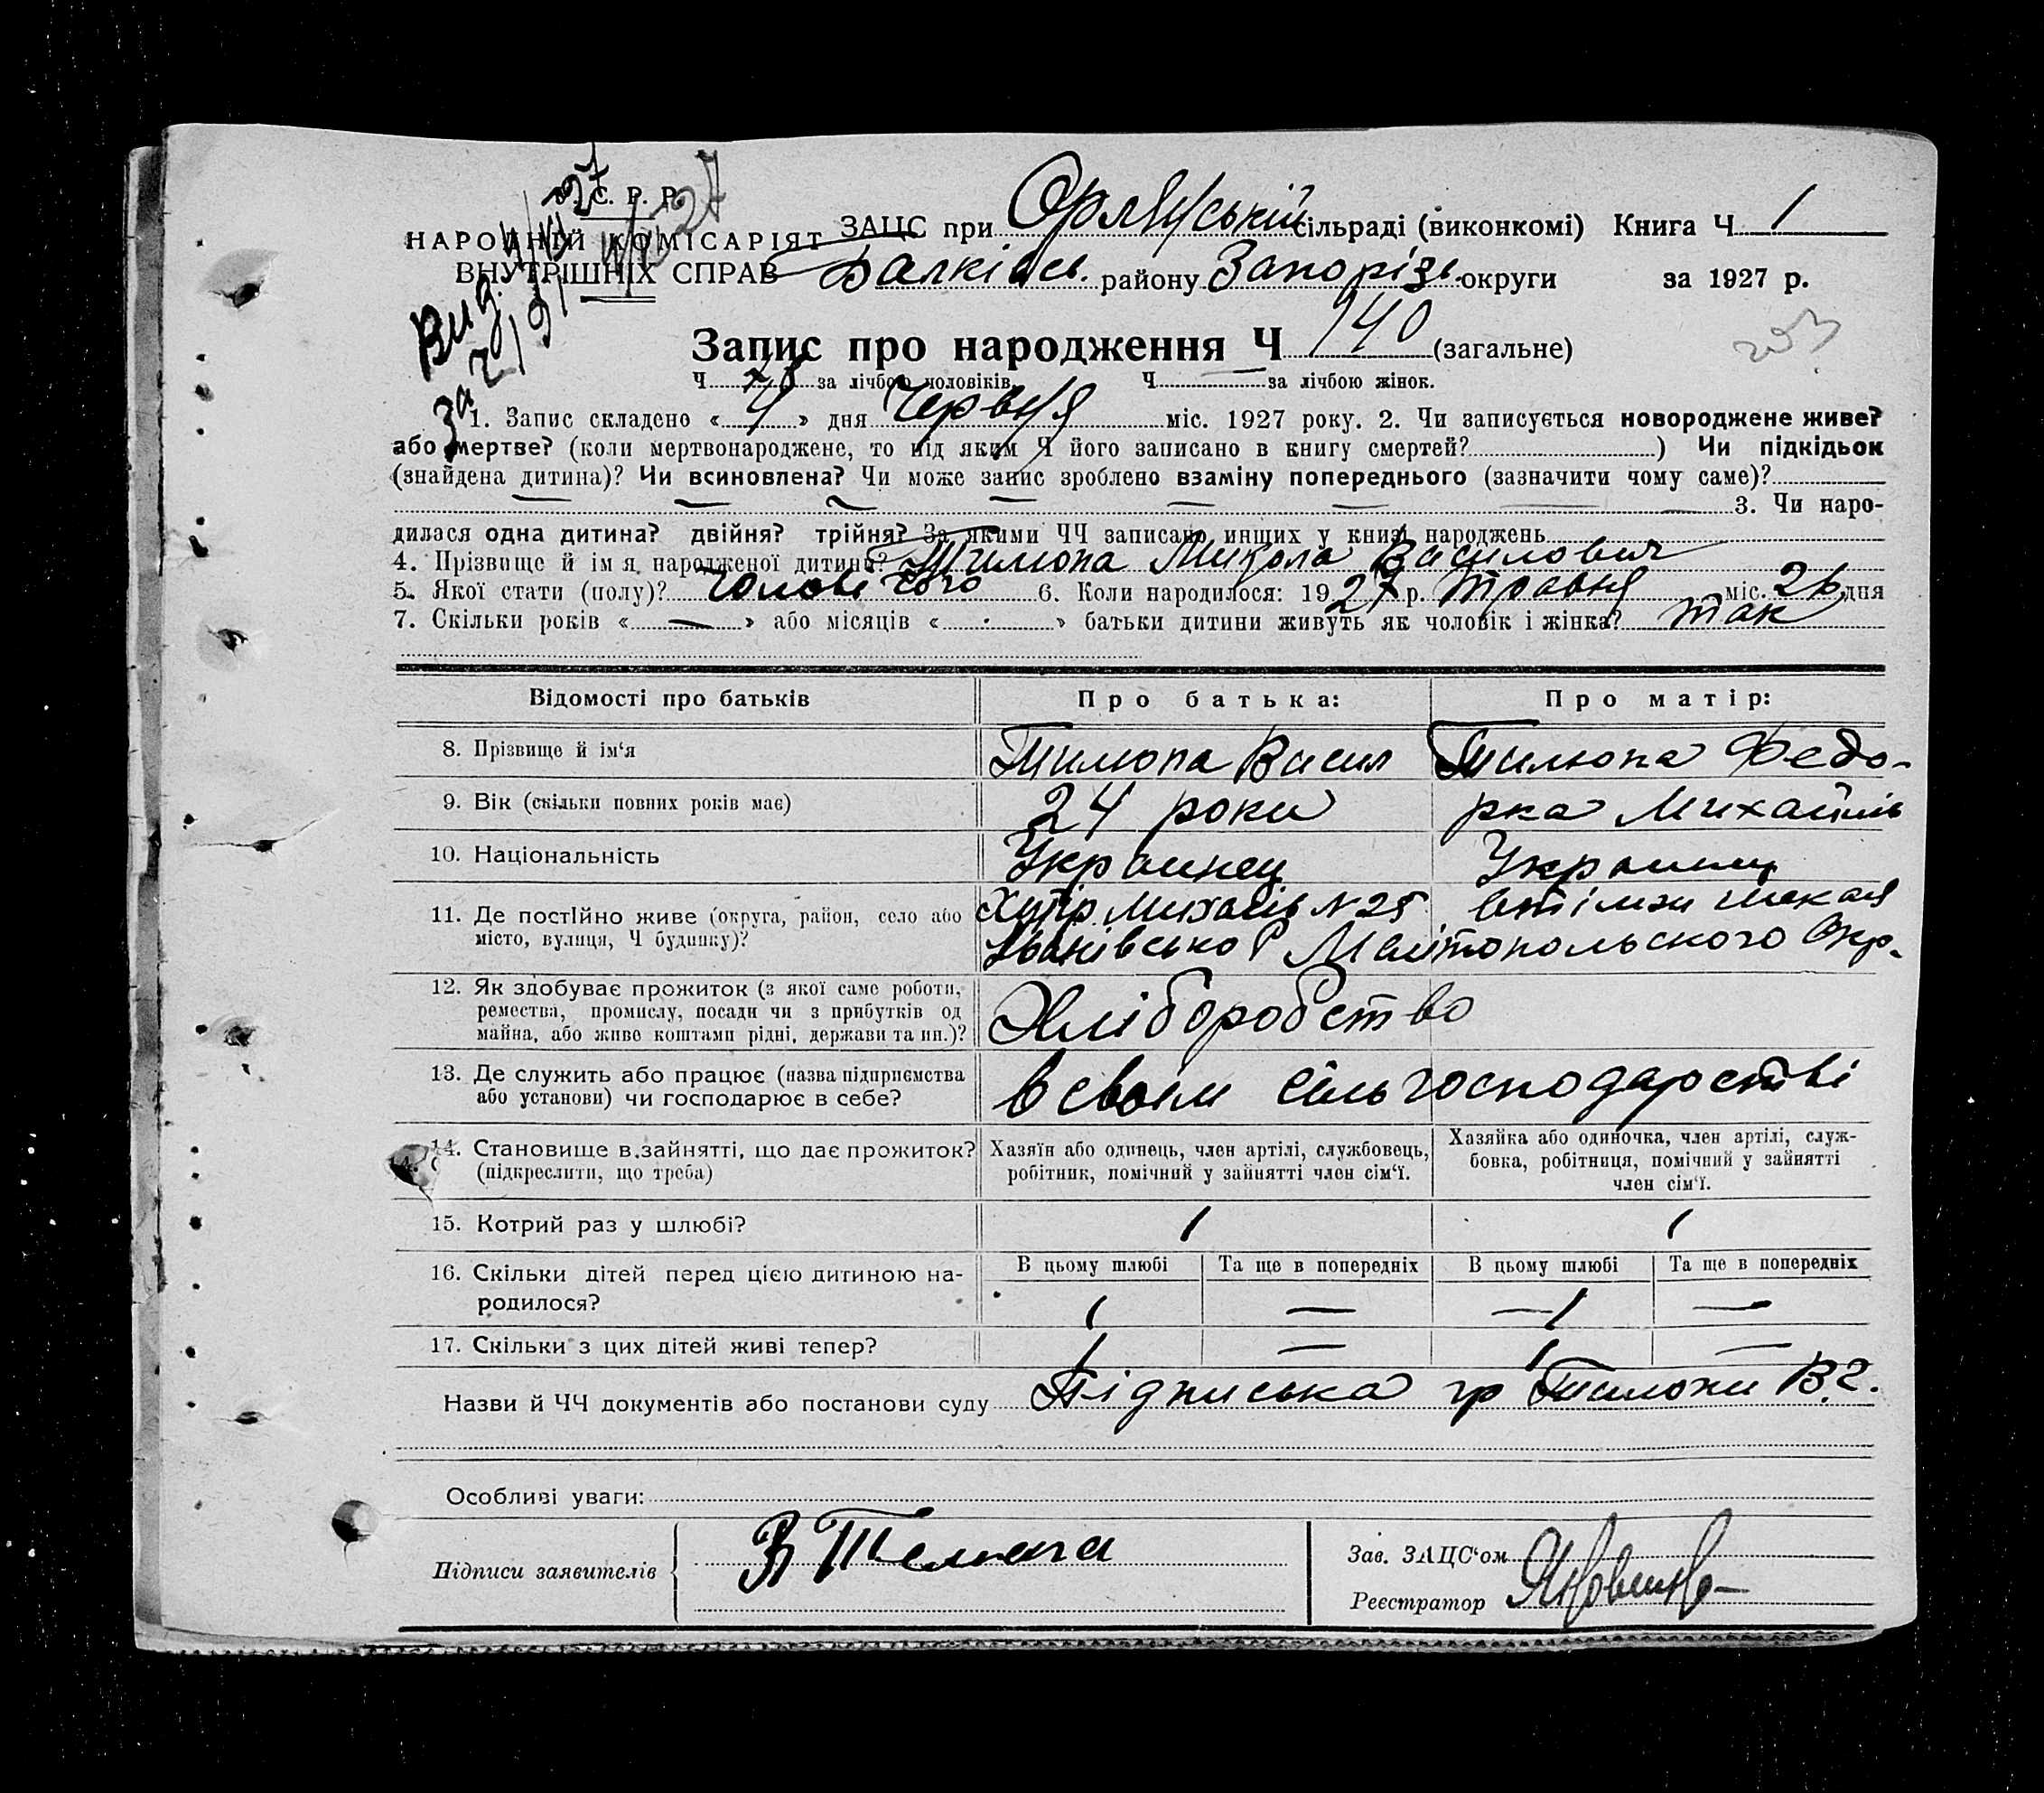 С. Р. Р.
НАРОДНІЙ КОМІСАРІЯТ
ВНУТРІШНІХ СПРАВ
Вид.
за
ЗАЦС при сільраді (виконкомі) Книга Ч 1
Балківсь. району Запорізь. округи за 1927 р.
Запис про народження Ч 140 (загальне)
Ч за лічбою чоловіків. Ч — за лічбою жінок.
1. Запис складено « 4 » дня Червня міс. 1927 року. 2. Чи записується новороджене живе?
або мертве? (коли мертвонароджене, то під яким Ч його записано в книгу смертей? ) Чи підкідьок
(знайдена дитина)? Чи всиновлена? Чи може запис зроблено взаміну попереднього (зазначити чому саме)?
3. Чи наро-
дилася одна дитина? двійня? трійня? За якими ЧЧ записано инщих у книзі народжень
4. Прізвище й ім я народженої дитини? Тилюпа Микола Василович
5. Якої стати (полу)? чоловічого 6. Коли народилося: 1927 р. Травня міс. 26 дня
7. Скільки років « — » або місяців « » батьки дитини живуть як чоловік і жінка? так
Відомості про батьків Про батька: Про матір:
8. Прізвище й ім'я Тилюпа Васил Тилюпа Федо-
9. Вік (скільки повних років має) 24 роки рка Михайлів
10. Національність Украинец
11. Де постійно живе (округа, район, село або Хутір Михайлів N 25
місто, вулиця, Ч будинку)? Іванівсько Р Мелітопольского Окр.
12. Як здобуває прожиток (з якої саме роботи,
ремества, промислу, посади чи з прибутків од Хліборобство
майна, або живе коштами рідні, держави та ин.)?
13. Де служить або працює (назва підприємства в своїм сільгосподарстві
або установи) чи господарює в себе?
14. Становище в зайнятті, що дає прожиток? Хазяїн або одинець, член артілі, службовець, Хазяйка або одиночка, член артілі, служ-
(підкреслити, що треба) робітник, помічний у зайнятті член сім'ї. бовка, робітниця, помічний у зайнятті
член сім'ї.
15. Котрий раз у шлюбі? 1 1
16. Скільки дітей перед цією дитиною на- В цьому шлюбі Та ще в попередніх В цьому шлюбі Та ще в попередніх
родилося? 1 — — 1 —
17. Скільки з цих дітей живі тепер? 1 — 1 —
Назви й ЧЧ документів або постанови суду Підписька гр Тилюпи В.
Особливі уваги:
Підписи заявителів В
Зав. ЗАЦС'ом
Реєстратор